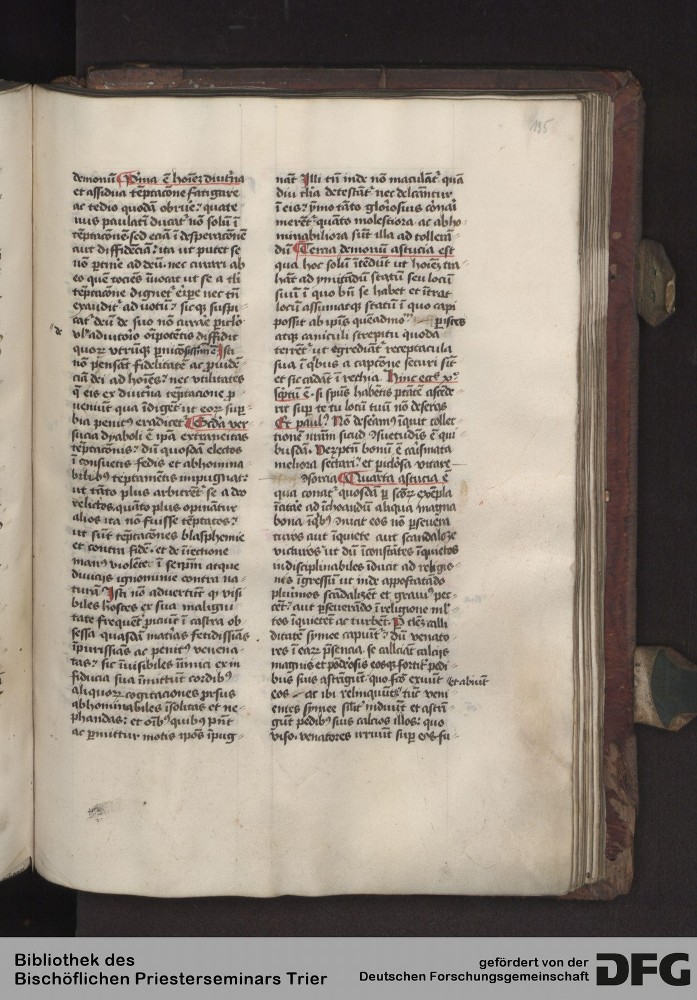 195
demoniū Pͥma ē hoīeꝫ diutͥna
et assidua tēptacōne fatigare
ac tedio quodā obrueꝛ quate
nus paulati ducat̉ nō solū ī
tēptacōneꝫ sed eciā ī desperacōneꝫ
aut diffidēciā ita ut putet se
nō ꝑtine ad deū nec curari ab
eo quē tociēs īuocat ut se a tli
tēptacōne dignet̉ eripe nec tn̄
exaudit̉ ad uotū sicqꝫ suspi
cat̉ deū de suo nō curare piclo
vl̓ adiutoīo oīpotētis diffidit
quoꝝ vtrūqꝫ Isti
nō pensāt fidelitatē ac puidē
ciā dei ad hoīes nec vtilitates
q̄ eis ex diutͥna tēptacione ꝓ
ueniūt qua īdigēt ut eoꝝ suꝑ
bia penitꝰ eradicet̉ Scd̓a ver
sucia dyaboli ē ipā extraneitas
tēptacōnis dū quosdā electos
ī consuetis fedis et abhomina
bilibꝫ teptamētis impugnat
ut tāto plus arbitrēt̉ se a deo
relictos quāto plus opināt̉
alios ita nō fuisse tēptatos
ut sūt teptacōnes blasphemie
et contra fidē et de
manꝰ violēte ī seip̄m atqꝫ
ignominie contra na
turā Isti nō aduertūt qͥ visi
biles hostes ex sua maligni
tate frequēt̉ ī castra ob
sessa quasdā matias fetidissias
īpurissias ac penitꝰ venena
tas sic īuisibiles inimici ex in
fiducia sua īmittūt cordibꝰ
aliquoꝝ cogitaciones prsus
abhominabiles īsolitas et ne
phandas et oībꝫ quibꝫ pn̄t
ac pmittūr motis ipōs īpug
nāt Illi tn̄ inde nō maculāt̉ quā
diu illa detestāt̉ nec delcātur
ī eis ymo tāto gloriosius
merēt̉ quāto molestiora ac abho
minabiliora sūt illa ad tollerā
dū Tercia demonū astucia est
qua hoc solū ītēdūt ut hoīeꝫ tra
hāt ad ymitādū statū seu locū
suū ī quo bn̄ se habet et ītrat
locū assumatqꝫ statū ī quo capi
possit ab ip̄is quēadmoͫ pisces
atqꝫ caniculi strepitu quodā
terrēt̉ ut egrediāt̉ receptacula
sua ī qͥbus a capcōne securi sūt
et sic cadāt ī rechia Hinc
scͥptū ē si spūs habētis ptātē ascēde
rit suꝑ te tu locū tuū nō deseras
Et paulꝰ Nō deseamꝰ īquit collec
tionē nr̄am sicud ꝯsuetudīs ē qui
busdā Verptn̄ bonū ē carismata
meliora sectari et piclosa vitare
ꝯsorcia Quarta astucia ē
qua conat̉ quosdā p scōꝝ exēpla
īcitāe ad īchoandū aliqua magna
bona ī qͥbꝫ nō pseuera
turos aut īquiete aut scandalose
victuros ut dū īconstātes īquietos
indisciplinabiles īducit ad religio
nis īgressū ut inde appostatādo
plurimos scādalizēt et grauiꝰ pec
cēt aut pseuerādo ī religione ml̓
tos īquietēt ac turbēt P tlem calli
ditatē symee capiūt̉ dū venato
res ī eaꝝ pn̄sencia se calciāt calceis
magnis et pōderosis eosqꝫ fortit̉ pedi
bus suis astrīgūt quo fcō exuūt et abiūt
eos ac ibi relinquūt tūc veni
entes symee silit̉ īnduūt et astrī
gūt pedibꝫ suis calcios illos quo
viso venatores irruūt sup eos fu
Bibliothek des
Bischöflichen Priesterseminars Trier
gefördert von der
Deutschen Forschungsgemeinschaft
DFG